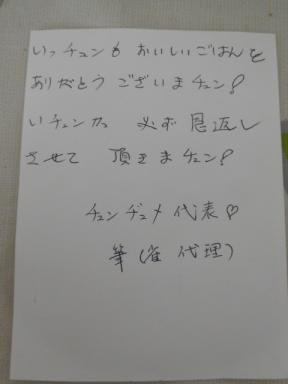 いっチュンも おいしいごはんを
ありがとう ございまチュン!
いチュンか 必ず 恩返し
させて 頂きまチュン!
チュンヂュメ 代表♡
筆(雀 代理)